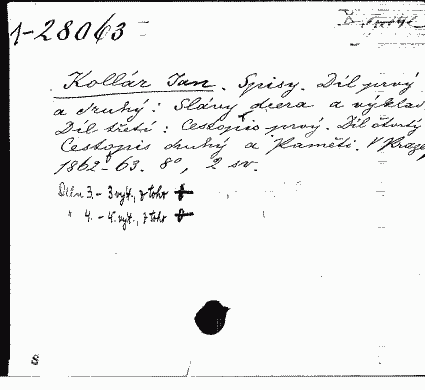 1-28063
Kollár Jan. Spisy. Díl prvý
a druhý: Slávy dcera a výklad
Díl třetí: Cestopis prvý. Díl čtvrtý
Cestopis druhý a Paměti. V Praze,
1862-63. 8°, 2 sv.
Dílu 3. - 3 výt., z toho
" 4. - 4. výt., z toho
S